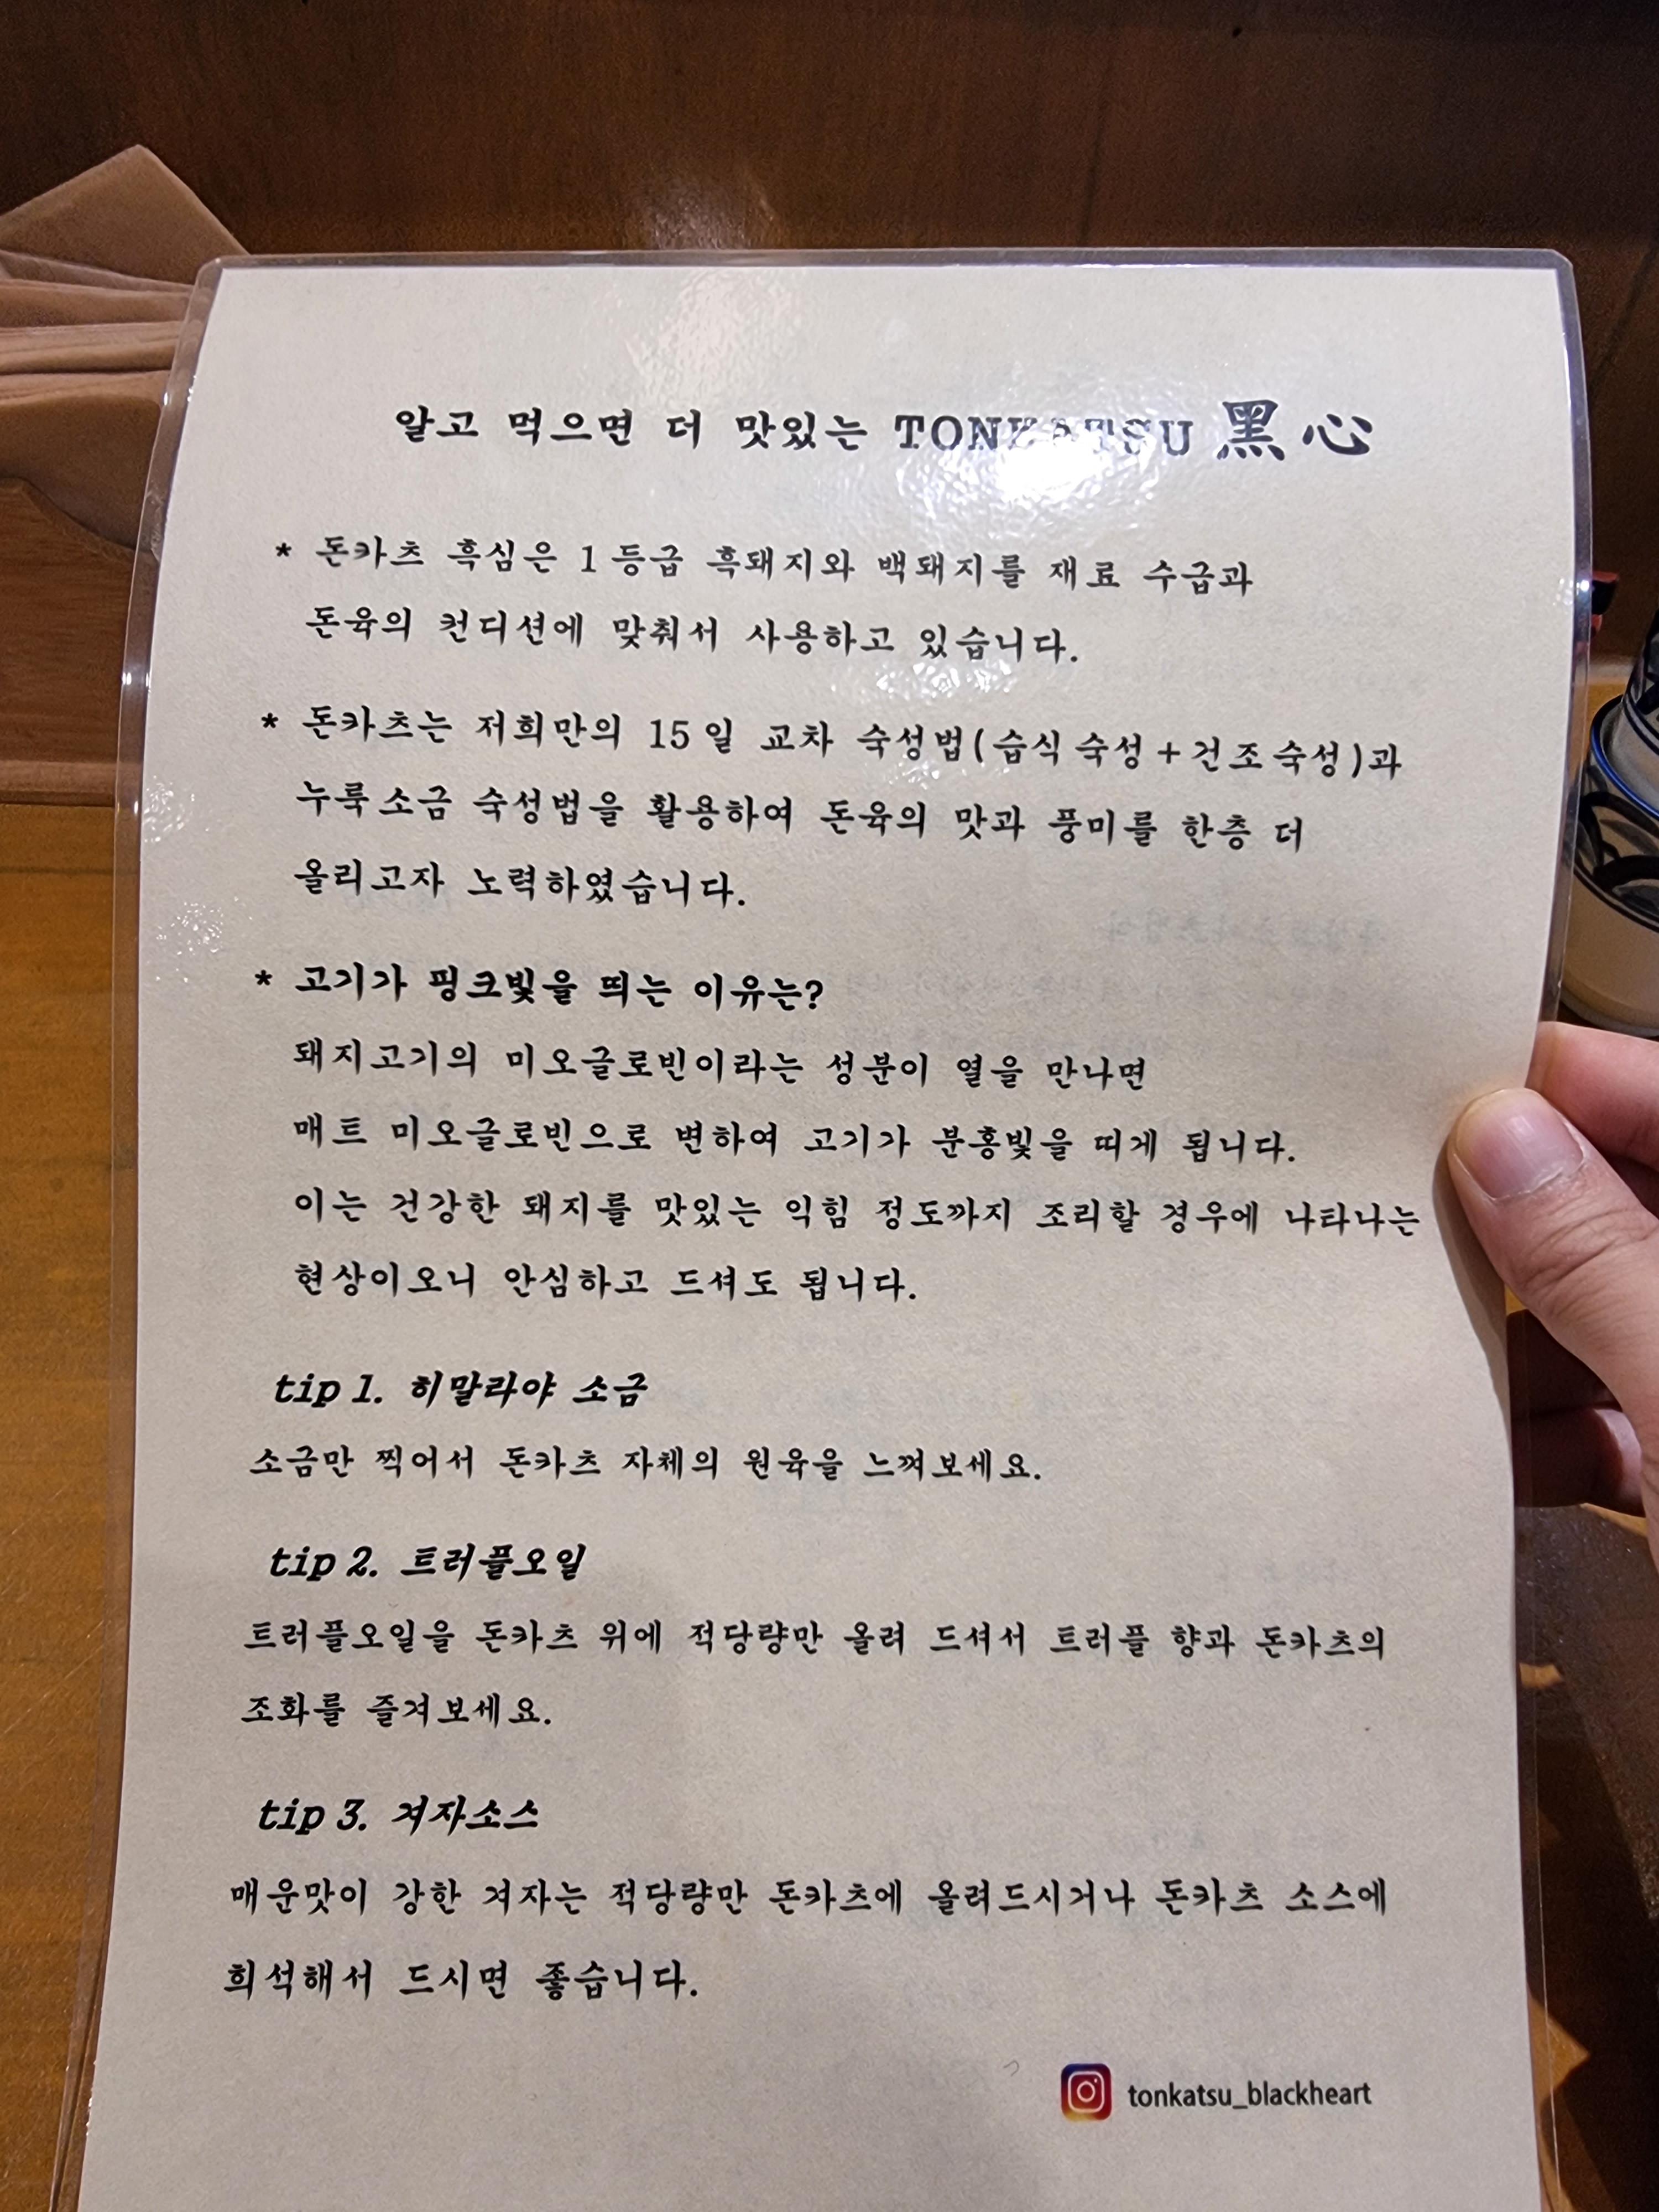 알고 먹으면 더 맛있는 TONKATSU 黑心
* 돈카츠 흑심은 1등급 흑돼지와 백돼지를 재료 수급과
돈육의 컨디션에 맞춰서 사용하고 있습니다.
* 돈카츠는 저희만의 15일 교차 숙성법(습식 숙성+건조 숙성)과
누룩소금 숙성법을 활용하여 돈육의 맛과 풍미를 한층 더
올리고자 노력하였습니다.
* 고기가 핑크빛을 띄는 이유는?
돼지고기의 미오글로빈이라는 성분이 열을 만나면
매트 미오글로빈으로 변하여 고기가 분홍빛을 띠게 됩니다.
이는 건강한 돼지를 맛있는 익힘 정도까지 조리할 경우에 나타나는
현상이오니 안심하고 드셔도 됩니다.
tip 1. 히말라야 소금
소금만 찍어서 돈카츠 자체의 원육을 느껴보세요.
tip 2. 트러플오일
트러플오일을 돈카츠 위에 적당량만 올려 드셔서 트러플 향과 돈카츠의
조화를 즐겨보세요.
tip 3. 겨자소스
매운맛이 강한 겨자는 적당량만 돈카츠에 올려드시거나 돈카츠 소스에
희석해서 드시면 좋습니다.
tonkatsu_blackheart